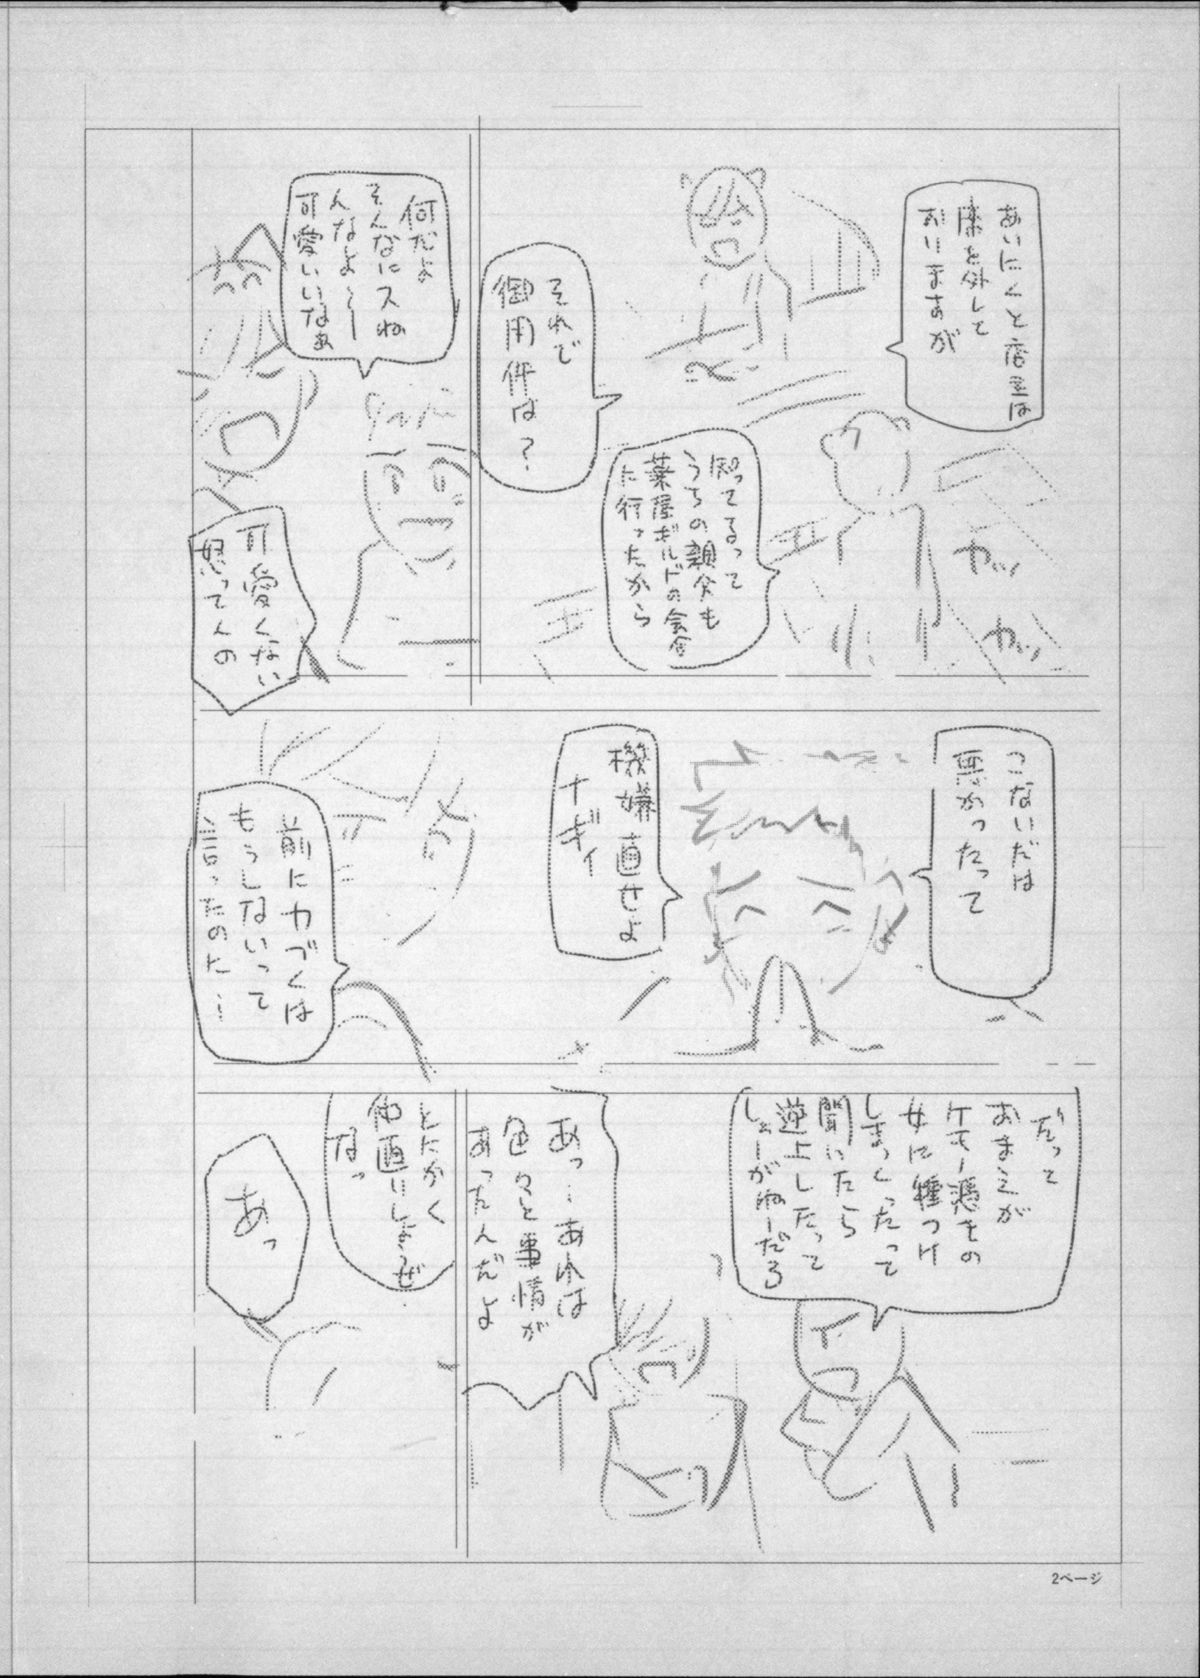 あいにくと店主は
席を外して
おりますが
カッ
カッ
知ってるって
うちの親父も
薬屋ギルドの会合
に行ったから
それで
御用件は？
何だよ
そんなにスね
んなよ〜
可愛いいなぁ
可愛くない
怒ってんの
こないだは
悪かったって
機嫌直せよ
ナギィ
前に力づくは
もうしないって
言ったのに…
だって
おまえが
ケモノ憑きの
女に種つけ
しまくったって
聞いたら
逆上したって
しょーがねーだろ
あっ…あれは
色々と事情が
あったんだよ
とにかく
仲直りしようぜ
なっ
あっ
2ページ